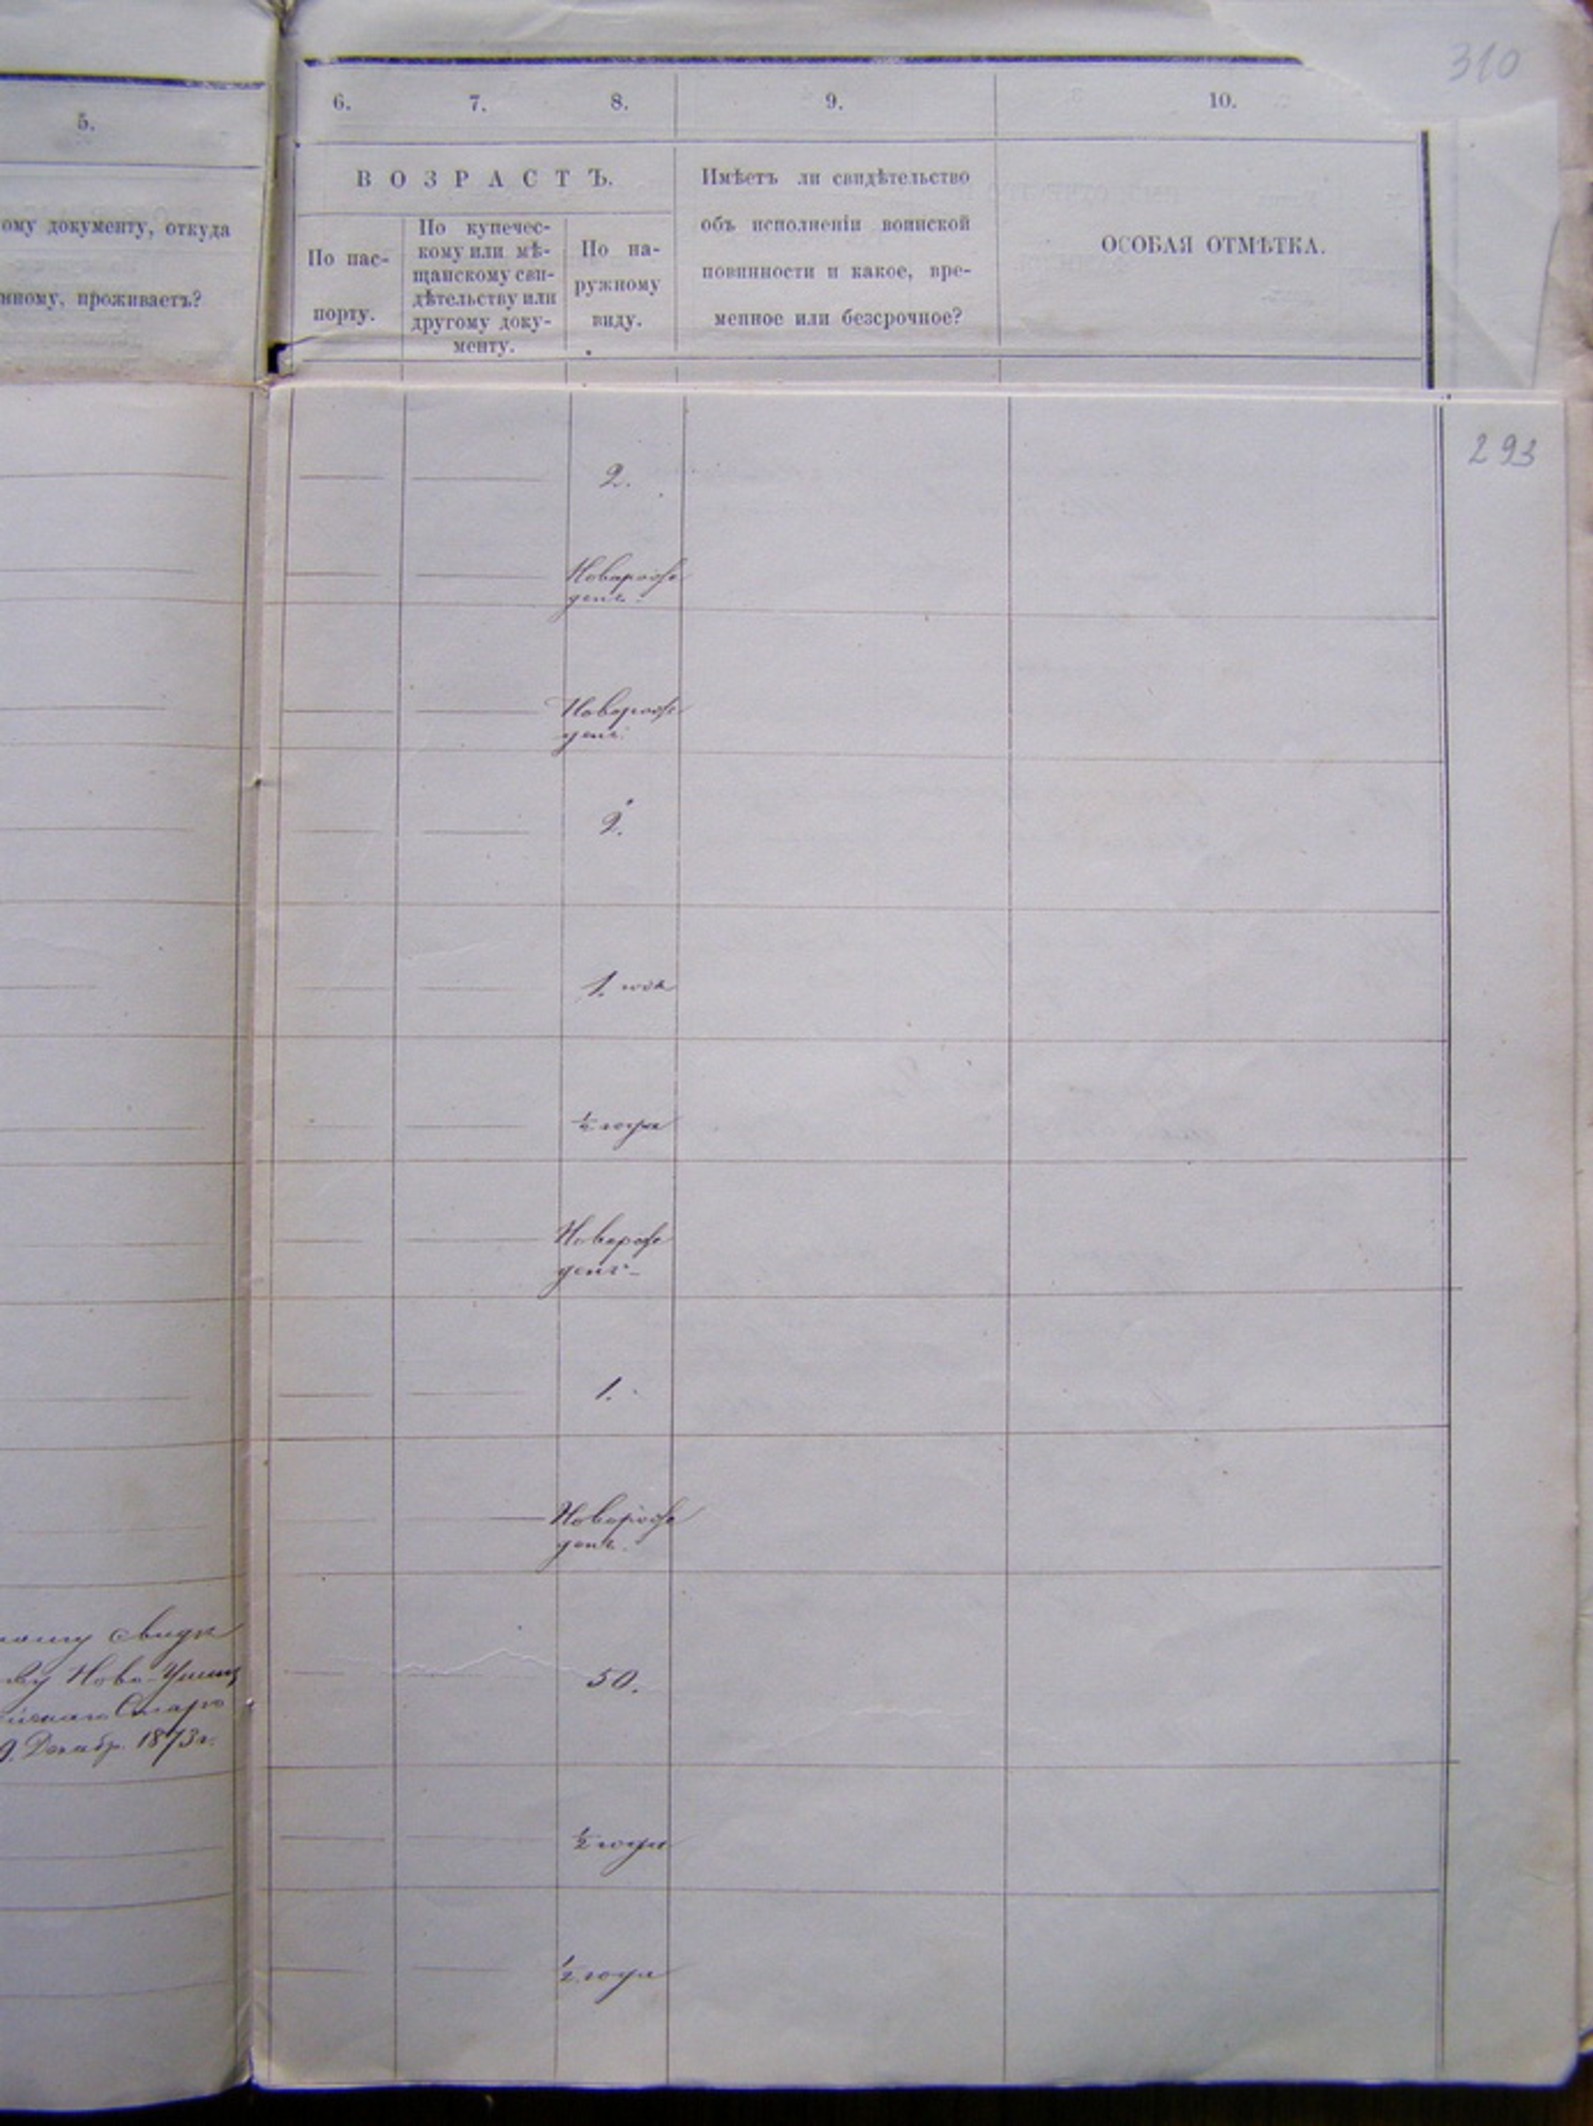 310
5.
6.
7.
8.
9.
10.
ому документу, откуда
нному, проживаетъ?
ВОЗРАСТЪ.
По пас-
порту.
По купечес-
кому или мѣ-
щанскому сви-
дѣтельству или
другому доку-
менту.
По на-
ружному
виду.
Имѣетъ ли свидѣтельство
объ исполненіи воинской
повинности и какое, вре-
менное или безсрочное?
ОСОБАЯ ОТМѢТКА.
293
2.
Новорож
денъ.
Новорож
денъ.
2.
1. годъ
½ года
Новорож
денъ
1.
Новорож
денъ.
свидѣ
Ново-Ушиц
Старо
9. Декабр. 1873 г.
50.
½ года
½ года